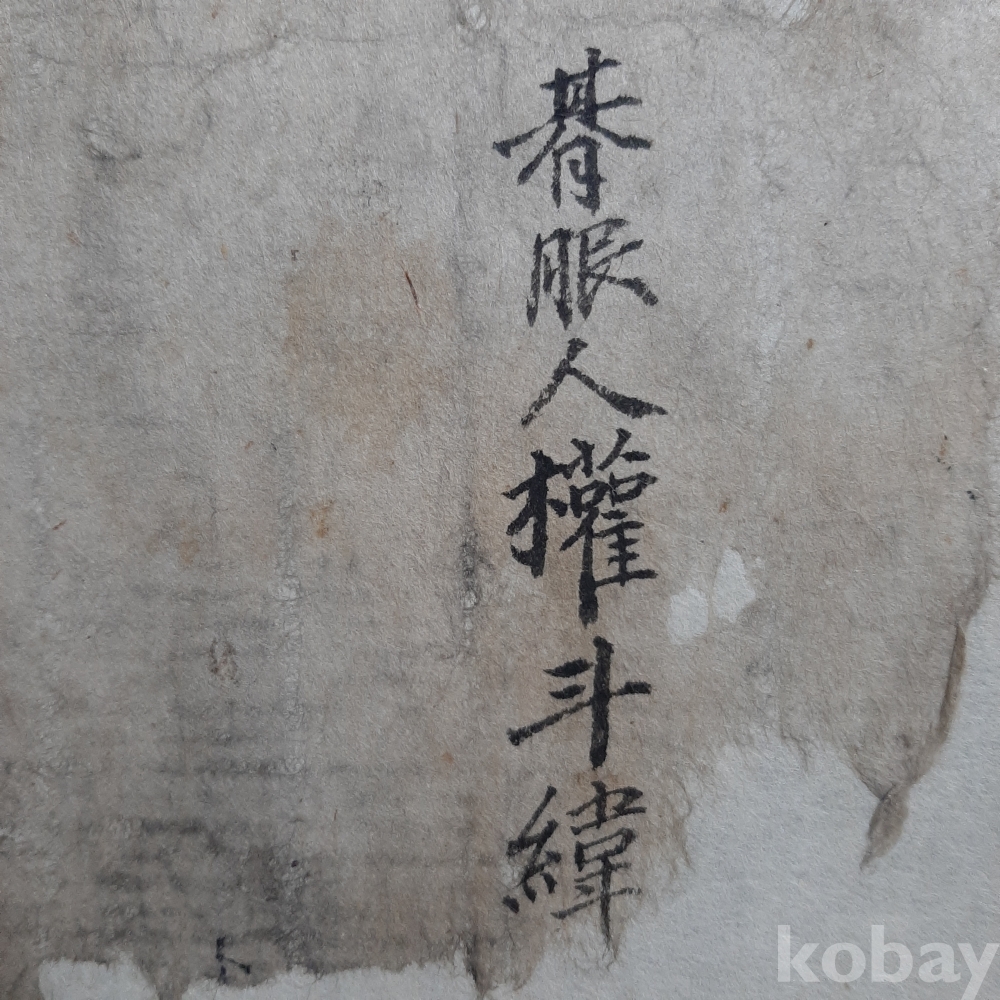 朞服人權斗緯
kobay